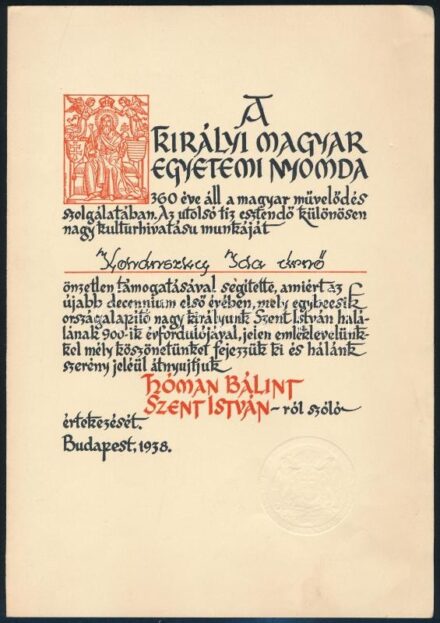 A
KIRÁLYI MAGYAR
EGYETEMI NYOMDA
360 éve áll a magyar művelődés
szolgálatában. Az utolsó tíz esztendő különösen
nagy kulturhivatásu munkáját
Ida
önzetlen támogatásával segítette, amiért az
újabb decennium első évében, mely egybeesik
országalapító nagy királyunk Szent István halá-
lának 900-ik évfordulójával, jelen emléklevelünk-
kel mély köszönetünket fejezzük ki és hálánk
szerény jeléül átnyujtjuk
HÓMAN BÁLINT
SZENT ISTVÁN-ról szóló
értekezését.
Budapest, 1938.